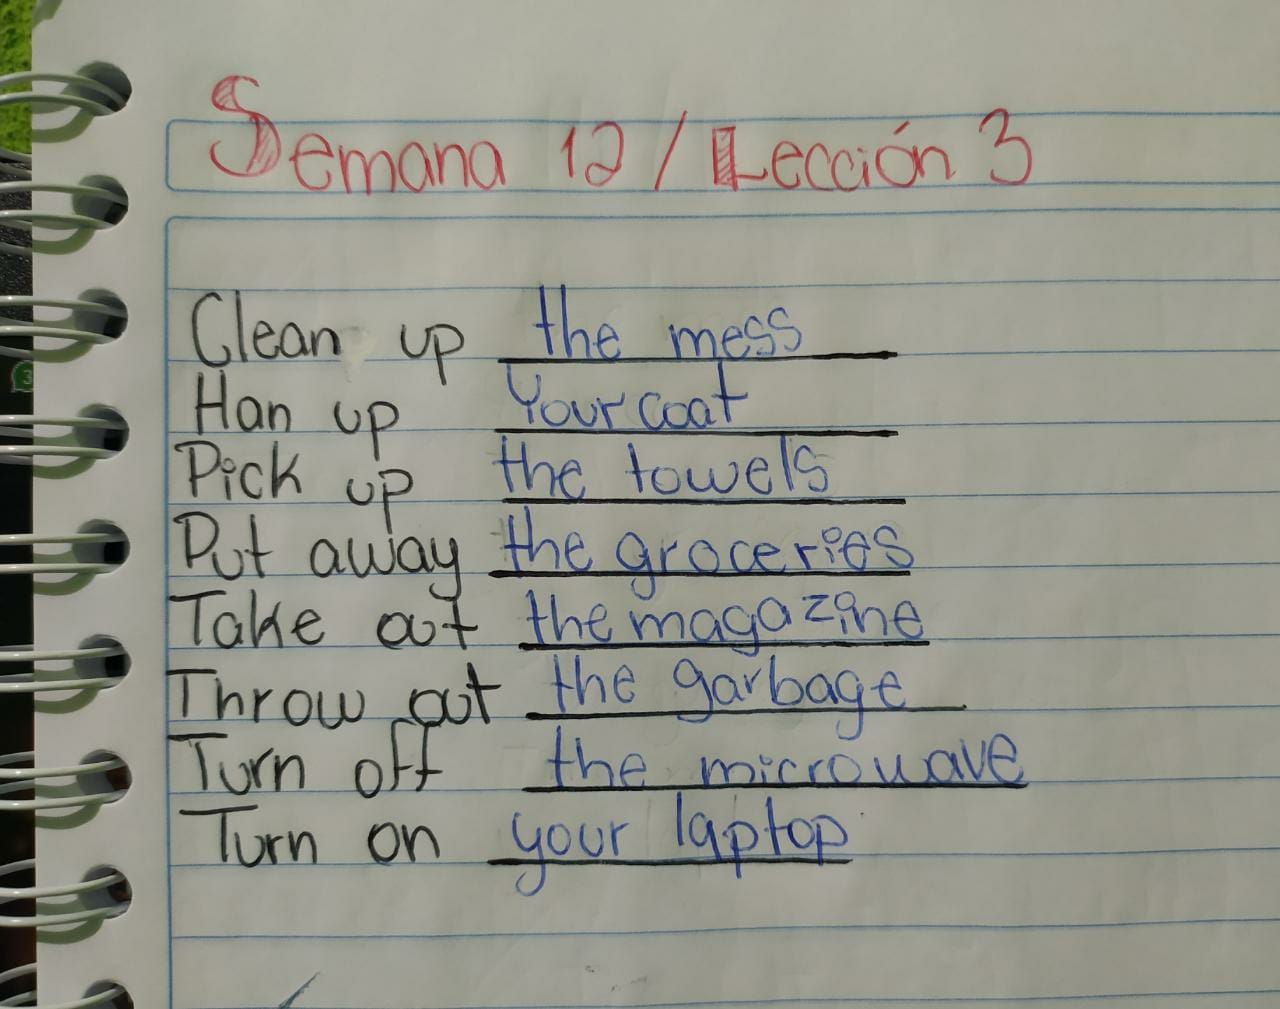 Semana 12 / Lección 3
Clean up the mess
Han up Your coat
Pick up the towels
Put away the groceries
Take out the magazine
Throw out the garbage
Turn off the microwave
Turn on your laptop